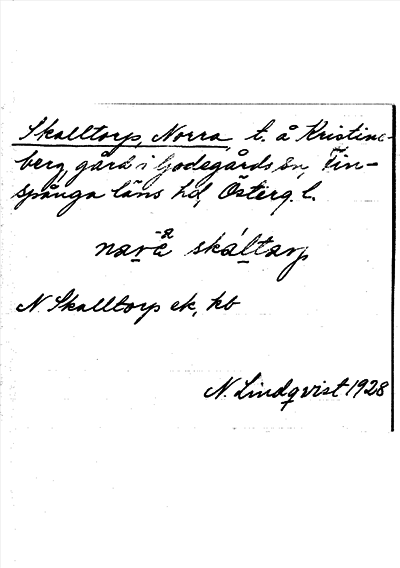 Skalltorp, Norra, t. å Kristine-
berg, gård i Godegårds sn, Fin-
spånga läns hd, Österg. l.
skáltarp
N. Skalltorp ek, kb
N. Lindqvist 1928